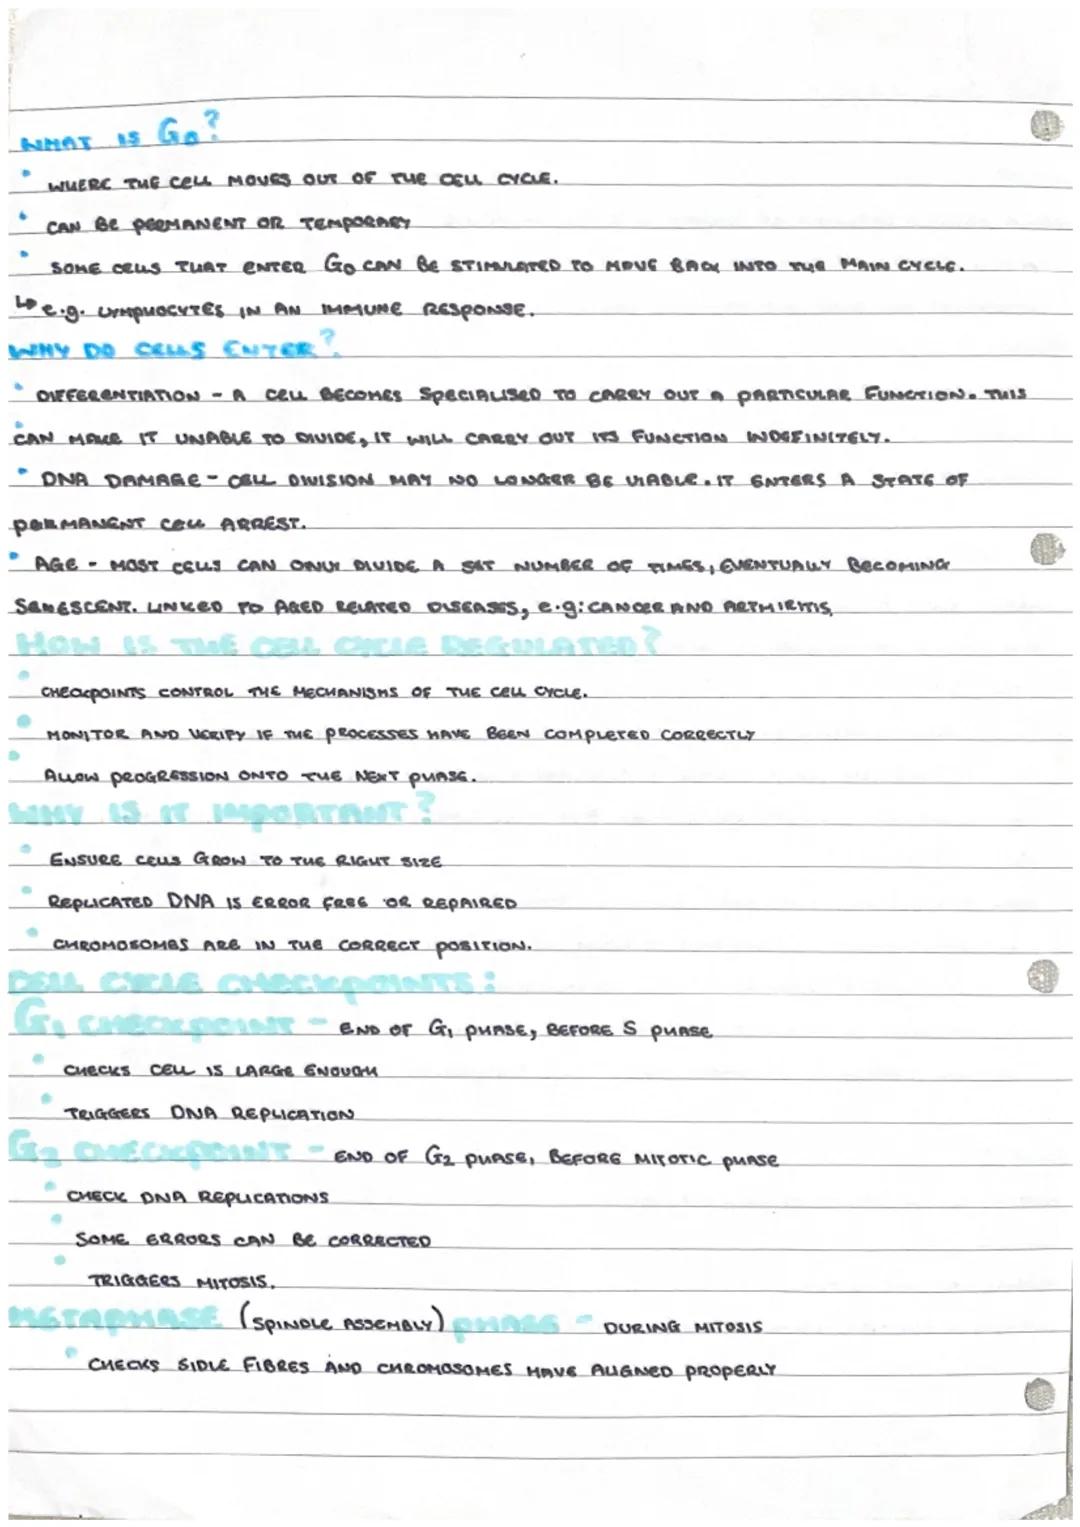 WHAT IS G0?
• WHERE THE CELL MOVES OUT OF THE CELL CYCLE.
• CAN BE PERMANENT OR TEMPORARY
• SOME CELLS THAT ENTER G0 CAN BE STIMULATED TO MOVE BACK INTO THE MAIN CYCLE.
↳ e.g. LYMPHOCYTES IN AN IMMUNE RESPONSE.
WHY DO CELLS ENTER?
• DIFFERENTIATION - A CELL BECOMES SPECIALISED TO CARRY OUT A PARTICULAR FUNCTION. THIS
CAN MAKE IT UNABLE TO DIVIDE, IT WILL CARRY OUT ITS FUNCTION INDEFINITELY.
• DNA DAMAGE - CELL DIVISION MAY NO LONGER BE VIABLE. IT ENTERS A STATE OF
PERMANENT CELL ARREST.
• AGE - MOST CELLS CAN ONLY DIVIDE A SET NUMBER OF TIMES, EVENTUALLY BECOMING
SENESCENT. LINKED TO AGED RELATED DISEASES, e.g: CANCER AND ARTHIRITIS.
HOW IS THE CELL CYCLE REGULATED?
• CHECKPOINTS CONTROL THE MECHANISMS OF THE CELL CYCLE.
• MONITOR AND VERIFY IF THE PROCESSES HAVE BEEN COMPLETED CORRECTLY
• ALLOW PROGRESSION ONTO THE NEXT PHASE.
WHY IS IT IMPORTANT?
• ENSURE CELLS GROW TO THE RIGHT SIZE
• REPLICATED DNA IS ERROR FREE OR REPAIRED
• CHROMOSOMES ARE IN THE CORRECT POSITION.
CELL CYCLE CHECKPOINTS:
G1 CHECKPOINT - END OF G1 PHASE, BEFORE S PHASE
• CHECKS CELL IS LARGE ENOUGH
• TRIGGERS DNA REPLICATION
G2 CHECKPOINT - END OF G2 PHASE, BEFORE MITOTIC PHASE
• CHECK DNA REPLICATIONS
• SOME ERRORS CAN BE CORRECTED
• TRIGGERS MITOSIS.
METAPHASE (SPINDLE ASSEMBLY) PHASE - DURING MITOSIS
• CHECKS SIDLE FIBRES AND CHROMOSOMES HAVE ALIGNED PROPERLY